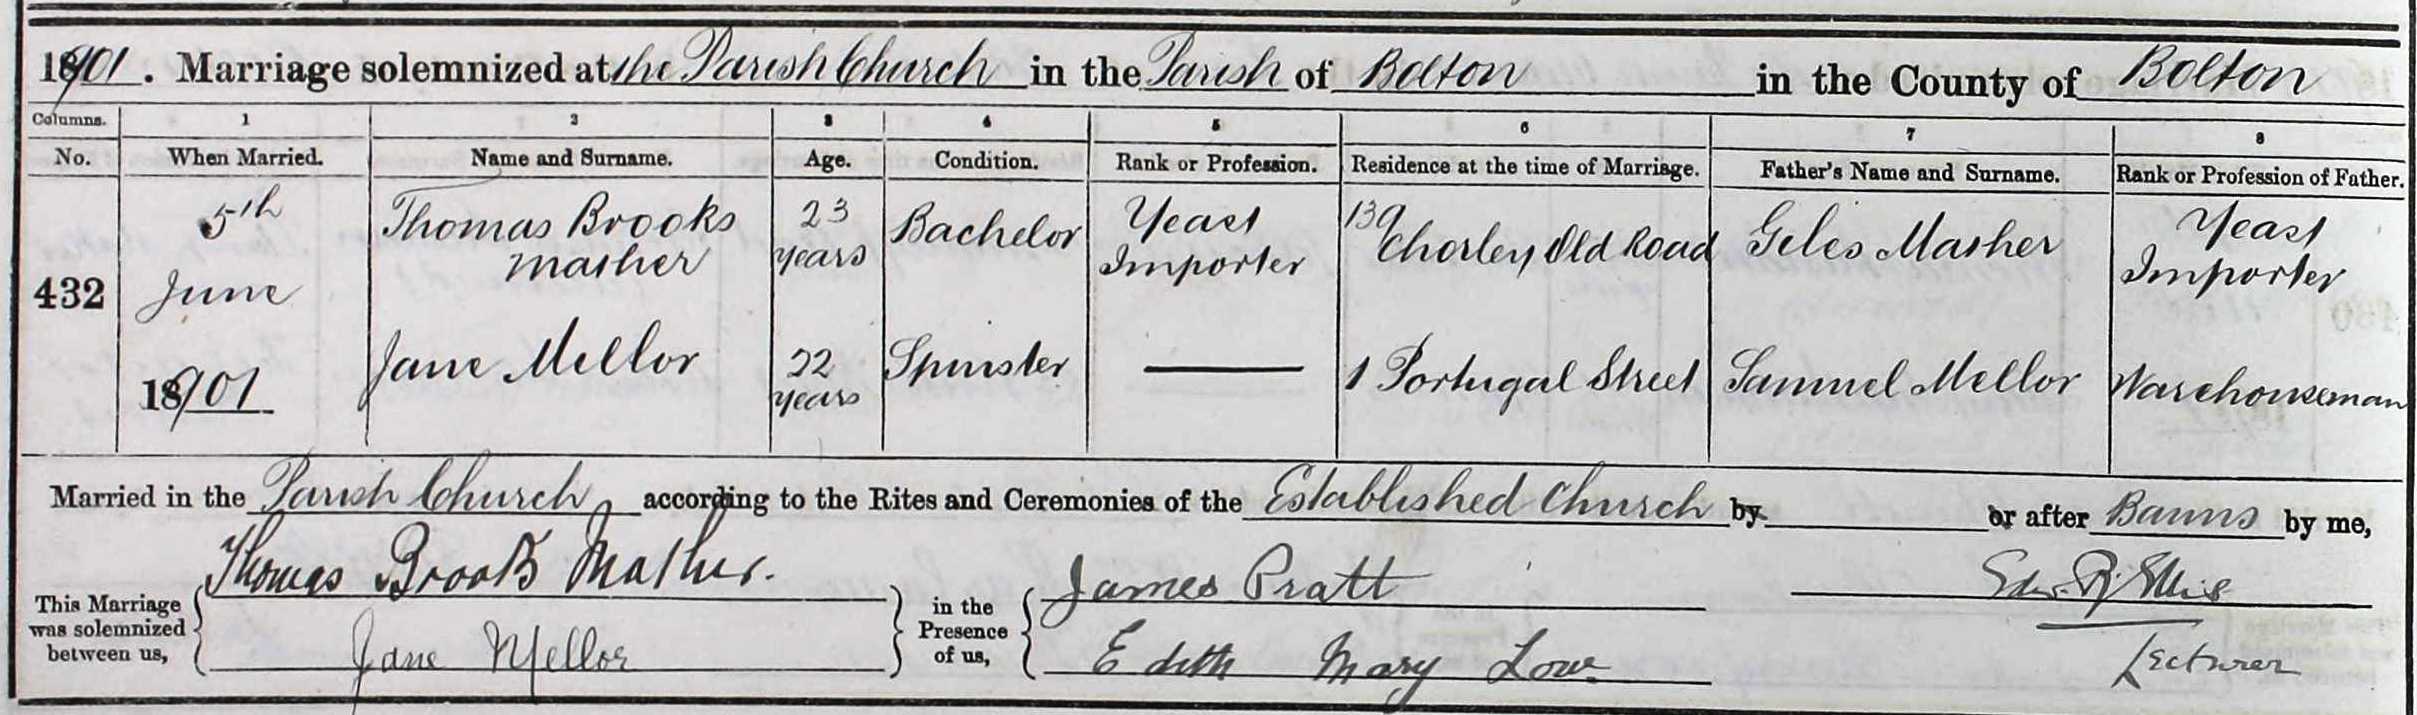 1901. Marriage solemnized at the Parish Church in the Parish of Bolton in the County of Bolton
Columns. 1 2 3 4 5 6 7 8
No. When Married. Name and Surname. Age. Condition. Rank or Profession. Residence at the time of Marriage. Father's Name and Surname. Rank or Profession of Father.
5th Thomas Brooks 23 Bachelor Yeast 139 Giles Mather Yeast
Mather years Importer Chorley Old Road Importer
432 June
Jane Mellor 22 Spinster 1 Portugal Street Samuel Mellor Warehouseman
1901 years
Married in the Parish Church according to the Rites and Ceremonies of the Established Church by or after Banns by me,
This Marriage was solemnized between us, Thomas Brooks Mather. in the Presence of us, James Pratt Edw. R. Ellis
Jane Mellor Edith Mary Low Lecturer